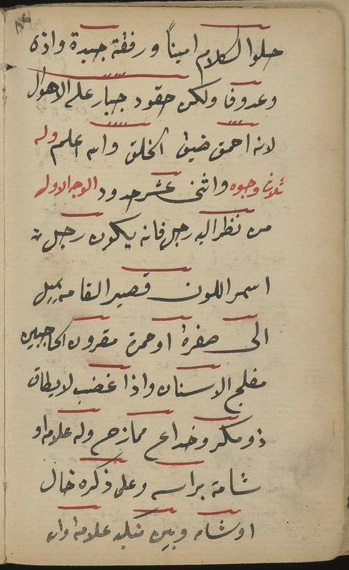 حلو الكلام امينا ورفقة جيدة واذى
وعدوفا ولكن حقود جبار على الاهوال
لانه احمق ضيق الخلق والله اعلم وله
ثلاث وجوه واثنى عشر حدود الاوجه الاوله
من نظر اليه رجل فانه يكون رجل
اسمر اللون قصير القامه يميل
الى صفرة او حمرة مقرون الحاجبين
مفلج الاسنان واذا غضب لا يطاق
ذو مكر وخداع ممازح وله علامه او
شامة براسه وعلى ذكره خال
او شامه وبين علامه وان